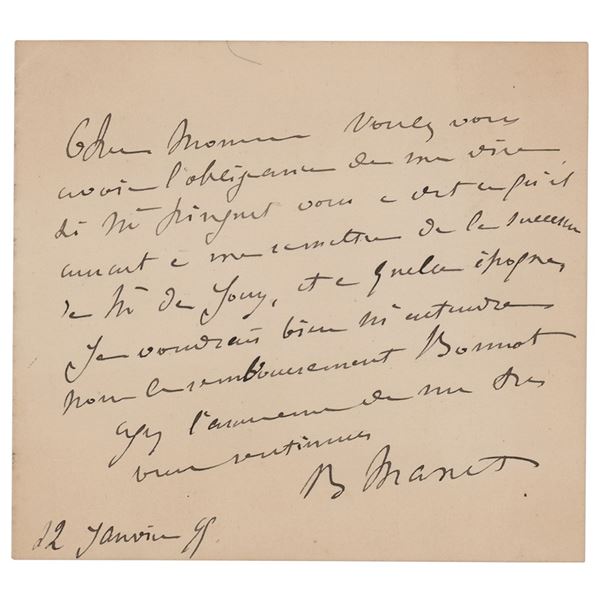 Cher Monsieur Voulez vous
avoir l'obligeance de me dire
si Mr vous a dit ce qu'il
aurait a me remettre de la succession
de Mr de Jouy, et a quelle époque,
Je voudrais bien m'entendre
pour le remboursement Bonnot
agréez l'assurance de mes très
vrais sentiments
B Manet
12 Janvier 95